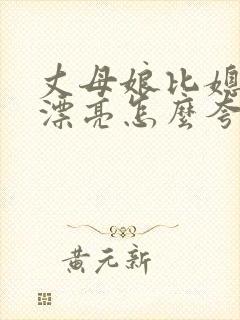 丈母娘比媳
漂亮怎麼夸
黄元新